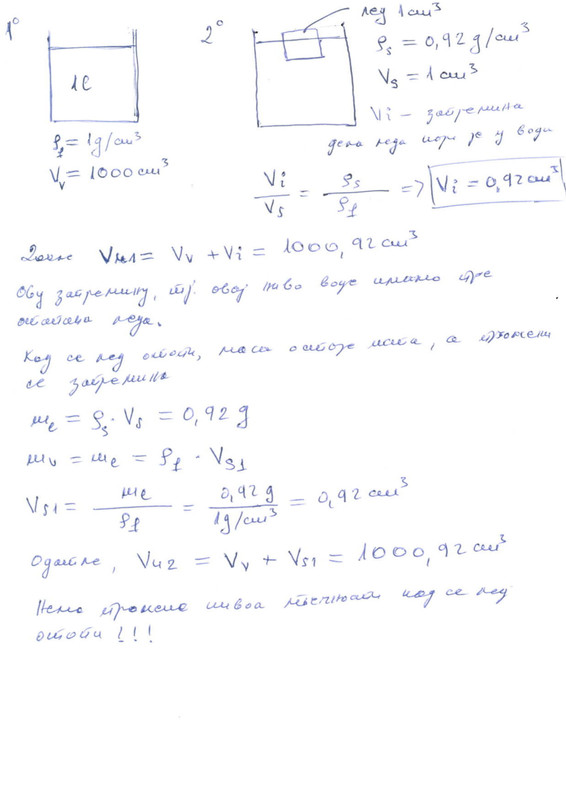 1° 2° лед 1cm³
1ℓ
ρf = 1g/cm³
Vv = 1000 cm³
ρs = 0,92 g/cm³
Vs = 1 cm³
Vi – запремина
дела леда који је у води
Vi/Vs = ρs/ρf => Vi = 0,92 cm³
Дакле Vн1 = Vv + Vi = 1000,92 cm³
Ову запремину, тј. овај ниво воде имамо пре
отапања леда.
Кад се лед отопи, маса остаје иста, а промени
се запремина
mℓ = ρs · Vs = 0,92 g
mv = mℓ = ρf · Vs1
Vs1 = mℓ/ρf = 0,92 g / 1g/cm³ = 0,92 cm³
Одатле, Vн2 = Vv + Vs1 = 1000,92 cm³
Нема промене нивоа течности кад се лед
отопи !!!